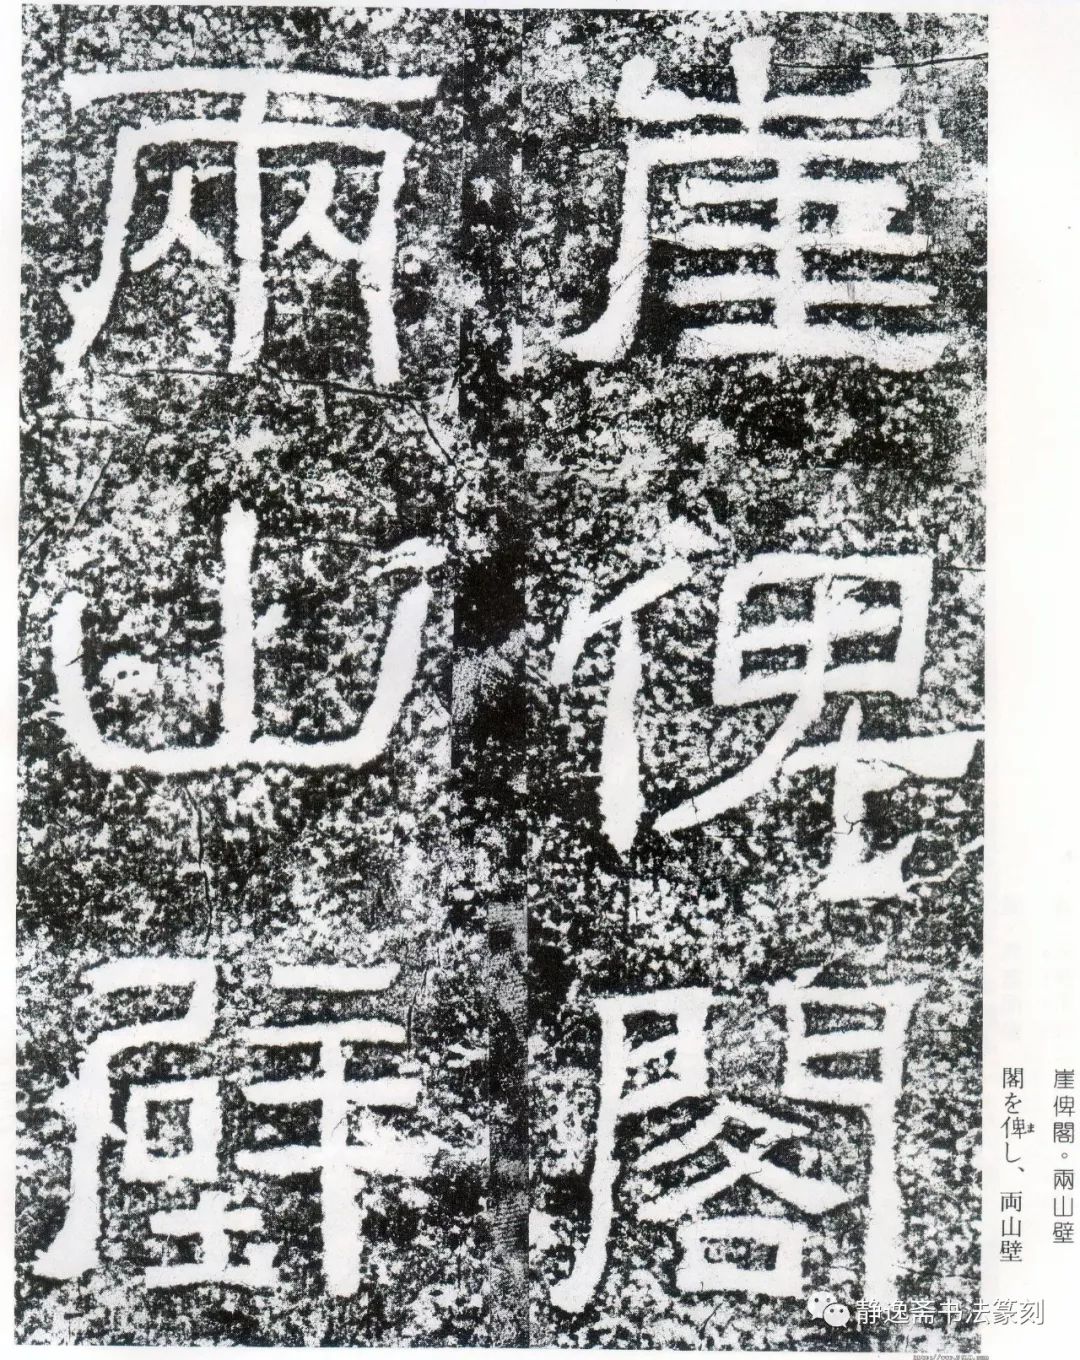 崖俾閣
兩山壁
崖俾閣。兩山壁
閣を俾し、両山壁
ま
静逸斋书法篆刻